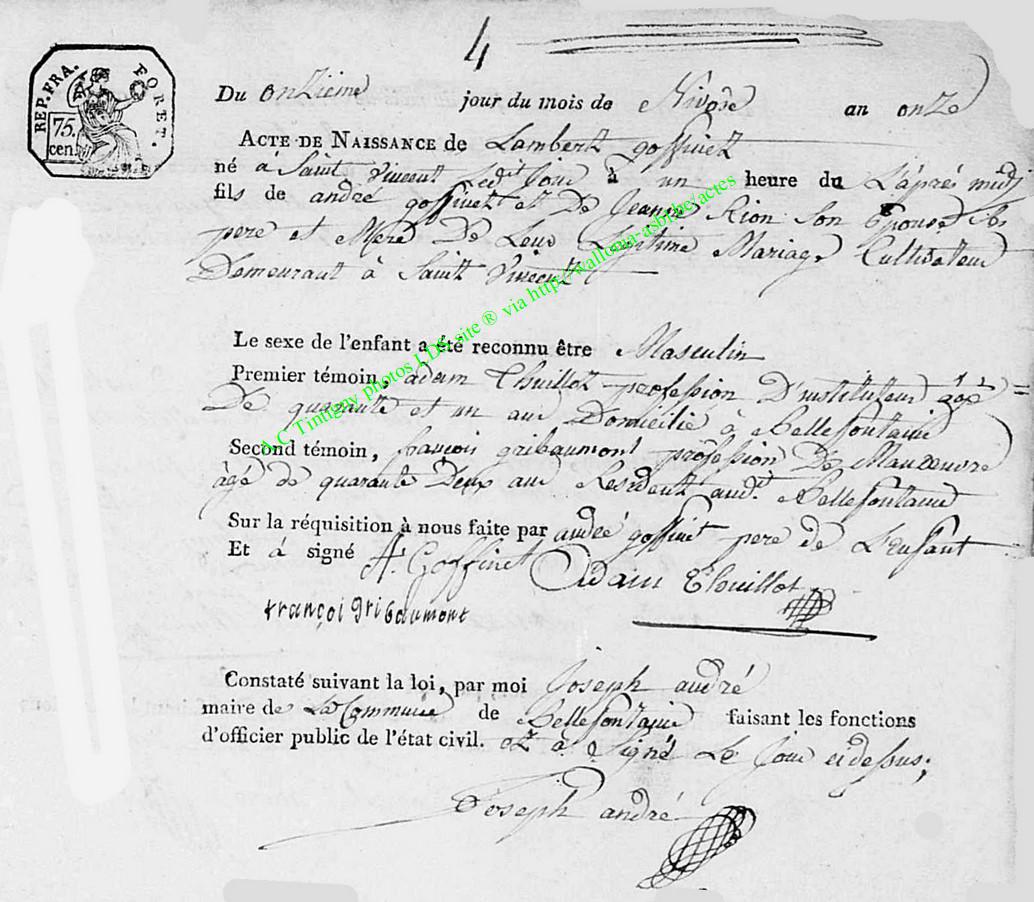 4
REP. FRA.
FORET.
75.
cen.
Du onZieme jour du mois de Nivose an onze
ACTE DE NAISSANCE de Lambert goffinet
né à Saint Vincent Ledit Jour à un heure du L'après midj
fils de andré goffinet et De Jeanne Rion Son Epouse Ses
pere et Mere De Leur Legitime Mariage Cultivateur
Demeurant à Saint Vincent
Le sexe de l'enfant a été reconnu être Masculin
Premier témoin, adam Thuillot profession D'instituteur agé
De quarante et un ans Domicilié à Bellefontaine
Second témoin, françois gribaumont profession De Manoeuvre
àgé de quarante Deux ans Resident aud.t Bellefontaine
Sur la réquisition à nous faite par andré goffinet pere de L'enfant
Et à signé A. Goffinet Adam Thuillot
françoi gribaumont
Constaté suivant la loi, par moi Joseph andré
maire de La Commune de Bellefontaine faisant les fonctions
d'officier public de l'état civil. et à Signé Le Jour cidessus;
Joseph andré
A.C Tintigny photos LDS site ® via http://wallonia-asbl.be/actes